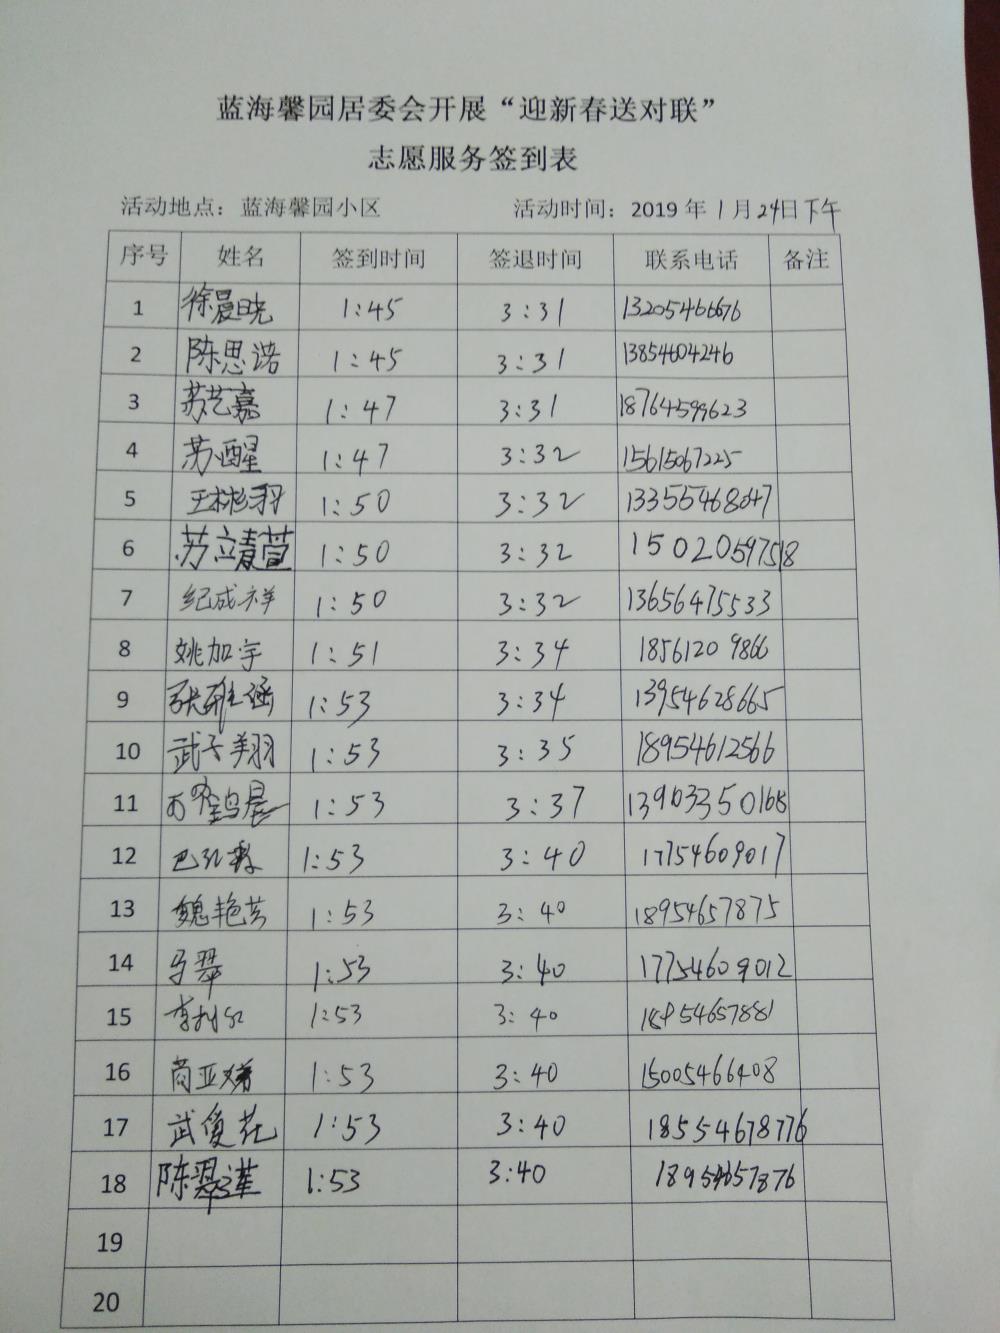 蓝海馨园居委会开展“迎新春送对联”
志愿服务签到表
活动地点：蓝海馨园小区 活动时间：2019 年 1 月 24 日下午
序号 姓名 签到时间 签退时间 联系电话 备注
1 徐晨晓 1:45 3:31 13205466676
2 陈思诺 1:45 3:31 13854604246
3 苏艺嘉 1:47 3:31 18764599623
4 苏醒 1:47 3:32 15615067225
5 王彬羽 1:50 3:32 13355468047
6 苏立青萱 1:50 3:32 15020597518
7 纪成祥 1:50 3:32 13656475533
8 姚加宇 1:51 3:34 18561209866
9 张雅涵 1:53 3:34 13954628665
10 武子翔 1:53 3:35 18954612566
11 1:53 3:37 13903350168
12 1:53 3:40 17754609017
13 魏艳芸 1:53 3:40 18954657875
14 马翠 1:53 3:40 17754609012
15 李利红 1:53 3:40 18954657881
16 尚亚娣 1:53 3:40 15005466408
17 武俊花 1:53 3:40 18554678776
18 陈翠莲 1:53 3:40 18954657876
19
20